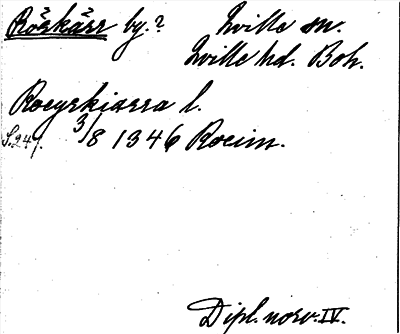 Röskärr by.? Kville sn.
Kville hd. Boh.
Roeyrkiarra l.
S. 247. 3/8 1346 Roeim.
Dipl. norv. IV.